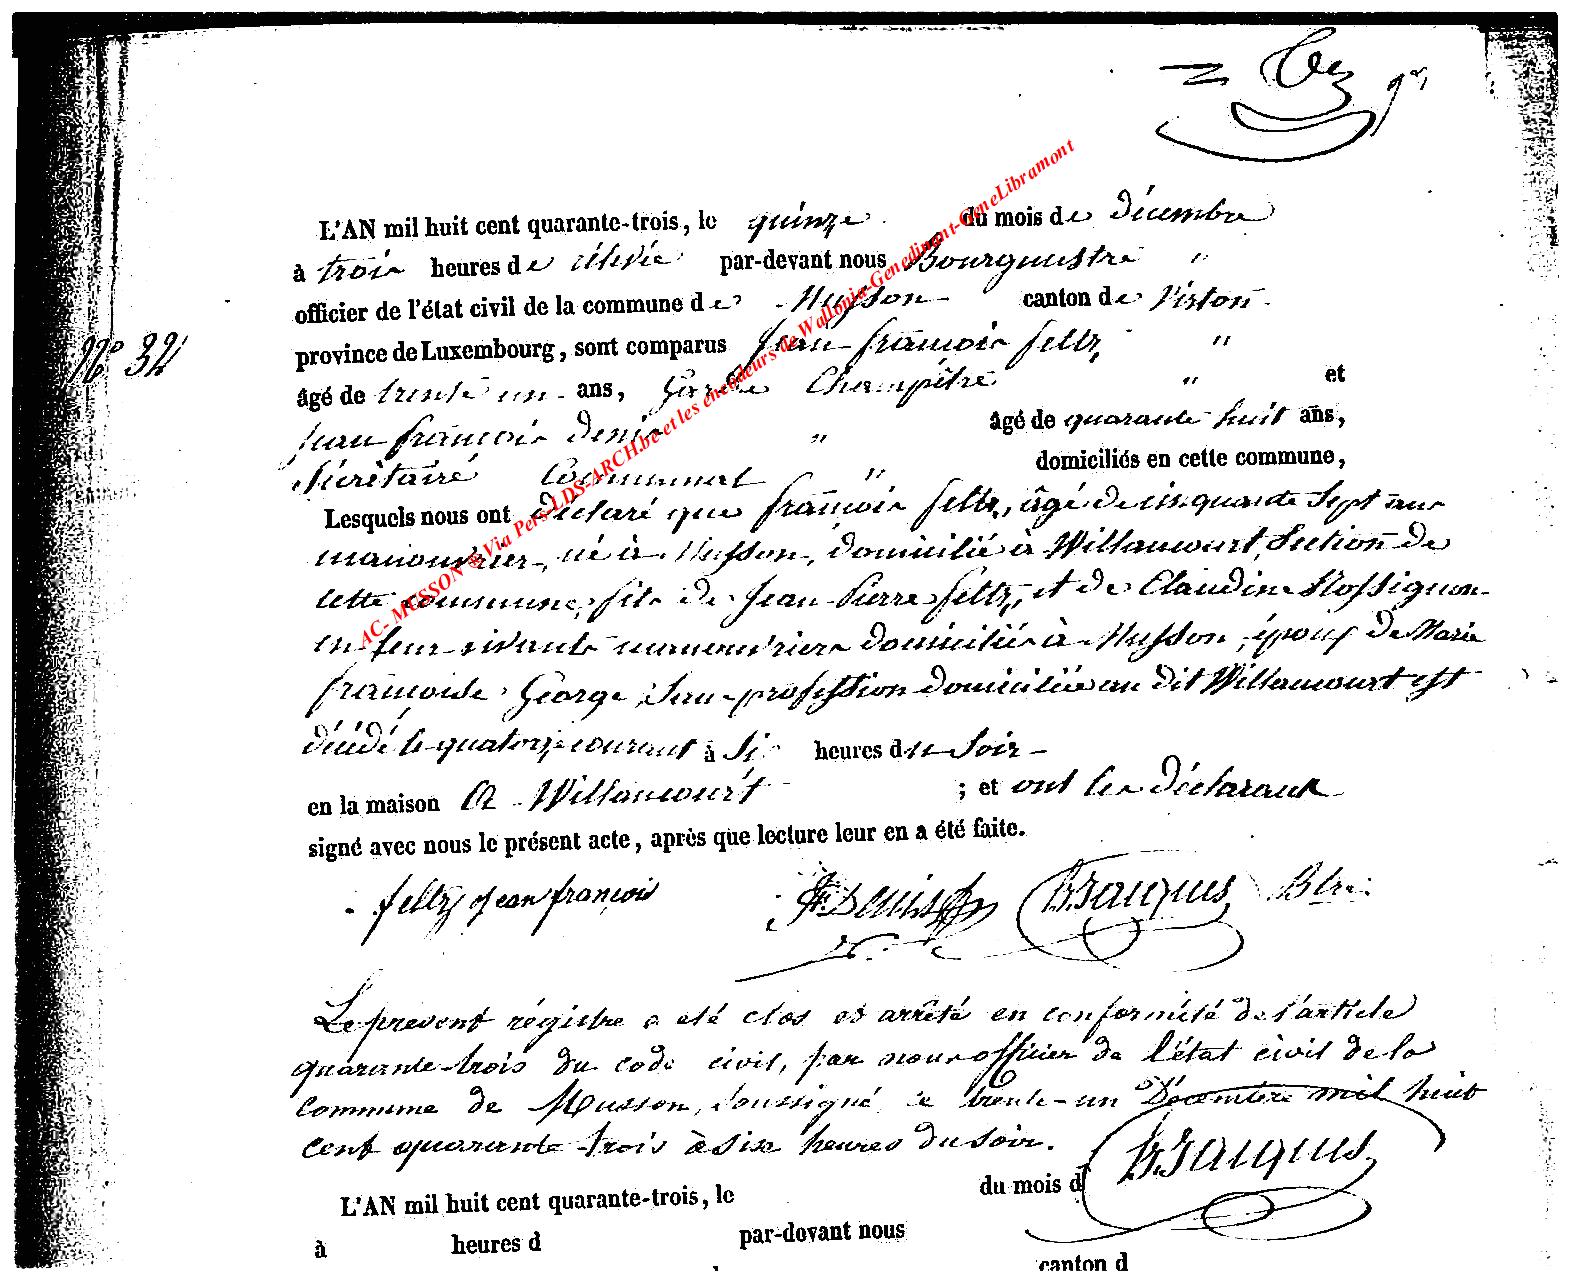 L'AN mil huit cent quarante-trois, le quinze du mois de décembre
à trois heures de rélevée par-devant nous Bourgmestre "
officier de l'état civil de la commune de Musson canton de Virton
province de Luxembourg, sont comparus Jean François Feltz, "
N° 32
âgé de trente un ans, Garde Champêtre " et
Jean François Denis " âgé de quarante huit ans,
Sécrétaire Communal " domiciliés en cette commune,
Lesquels nous ont déclaré que François Feltz, âgé de cinquante sept ans
manouvrier, né à Musson, domicilié à Willancourt, Section de
cette commune, fils de Jean Pierre Feltz, et de Claudine Rossignon
en leur vivants manouvriers domiciliés à Musson, époux de Marie
Françoise George, Sans profession domiciliée au dit Willancourt est
décédé le quatorze courant à Six heures du Soir
en la maison à Willancourt ; et ont les déclarans
signé avec nous le présent acte, après que lecture leur en a été faite.
feltz jean françois Denis Bjacques Btre
Le present régistre a eté clos et arrêté en conformité de l'article
quarante-trois du code civil, par nous officier de l'état civil de la
commune de Musson, soussigné le trente-un Décembre mil huit
cent quarante-trois à six heures du soir.
Bjacques
L'AN mil huit cent quarante-trois, le du mois d
à heures d par-devant nous
canton d
AC- MUSSON & Via Pers-LDS-ARCH.be et les encodeurs de Wallonia-Genedinant-GeneLibramont